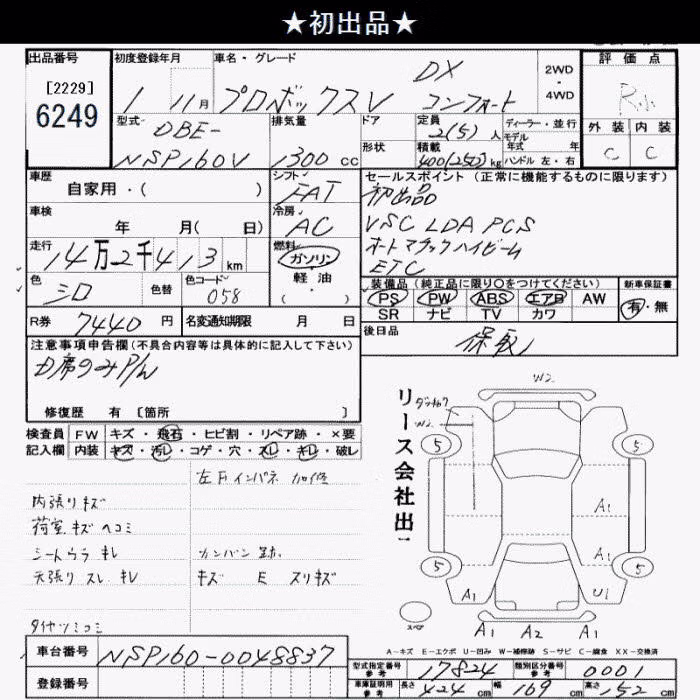 ★初出品★
出品番号 初度登録年月 車名・グレード 評価点
[2229]
6249
1 11月 プロボックスV DX コンフォート 2WD・4WD R小
外装 内装
C C
型式 DBE-
NSP160V
排気量 1300 cc
ドア 形状
定員 2(5)人
積載 400(250)kg
ディーラー・並行
モデル年式 年
ハンドル 左・右
車歴 自家用・( )
シフト FAT
セールスポイント(正常に機能するものに限ります)
初出品
VSC LDA PCS
オートマチックハイビーム
ETC
車検 年 月( 日)
冷房 AC
走行 14万2千413km
燃料 ガソリン・軽油・( )
色 シロ 色替 色コード 058
装備品(純正品に限り○をつけてください) 新車保証書
PS PW ABS エアB AW 有・無
SR ナビ TV カワ
R券 7440円 名変通知期限 月 日
後日品 保 取
注意事項申告欄(不具合内容等は具体的に記入して下さい)
D席のみP/W
修復歴 有 [箇所 ]
検査員 FW キズ・飛石・ヒビ割・リペア跡・×要
記入欄 内装 キズ・汚レ・コゲ・穴・スレ・キレ・破レ
内張りキズ
荷室 キズ ヘコミ
シートウラ キレ
天張り スレ キレ
タイヤツミコミ
左Fインパネ 加修
カンバン跡
キズ E スリキズ
リース会社出
W2
W2
5 5
A1
A1
5 5
A1 U1
スペア
A1 A2 A1
A-キズ E-エクボ U-凹み W-補修跡 S-サビ C-腐食 XX-交換済
車台番号 NSP160-0048837
登録番号
型式指定番号 参考 17824 類別区分番号 参考 0001
車庫証明用 参考 長さ 424cm 幅 169cm 高さ 152cm